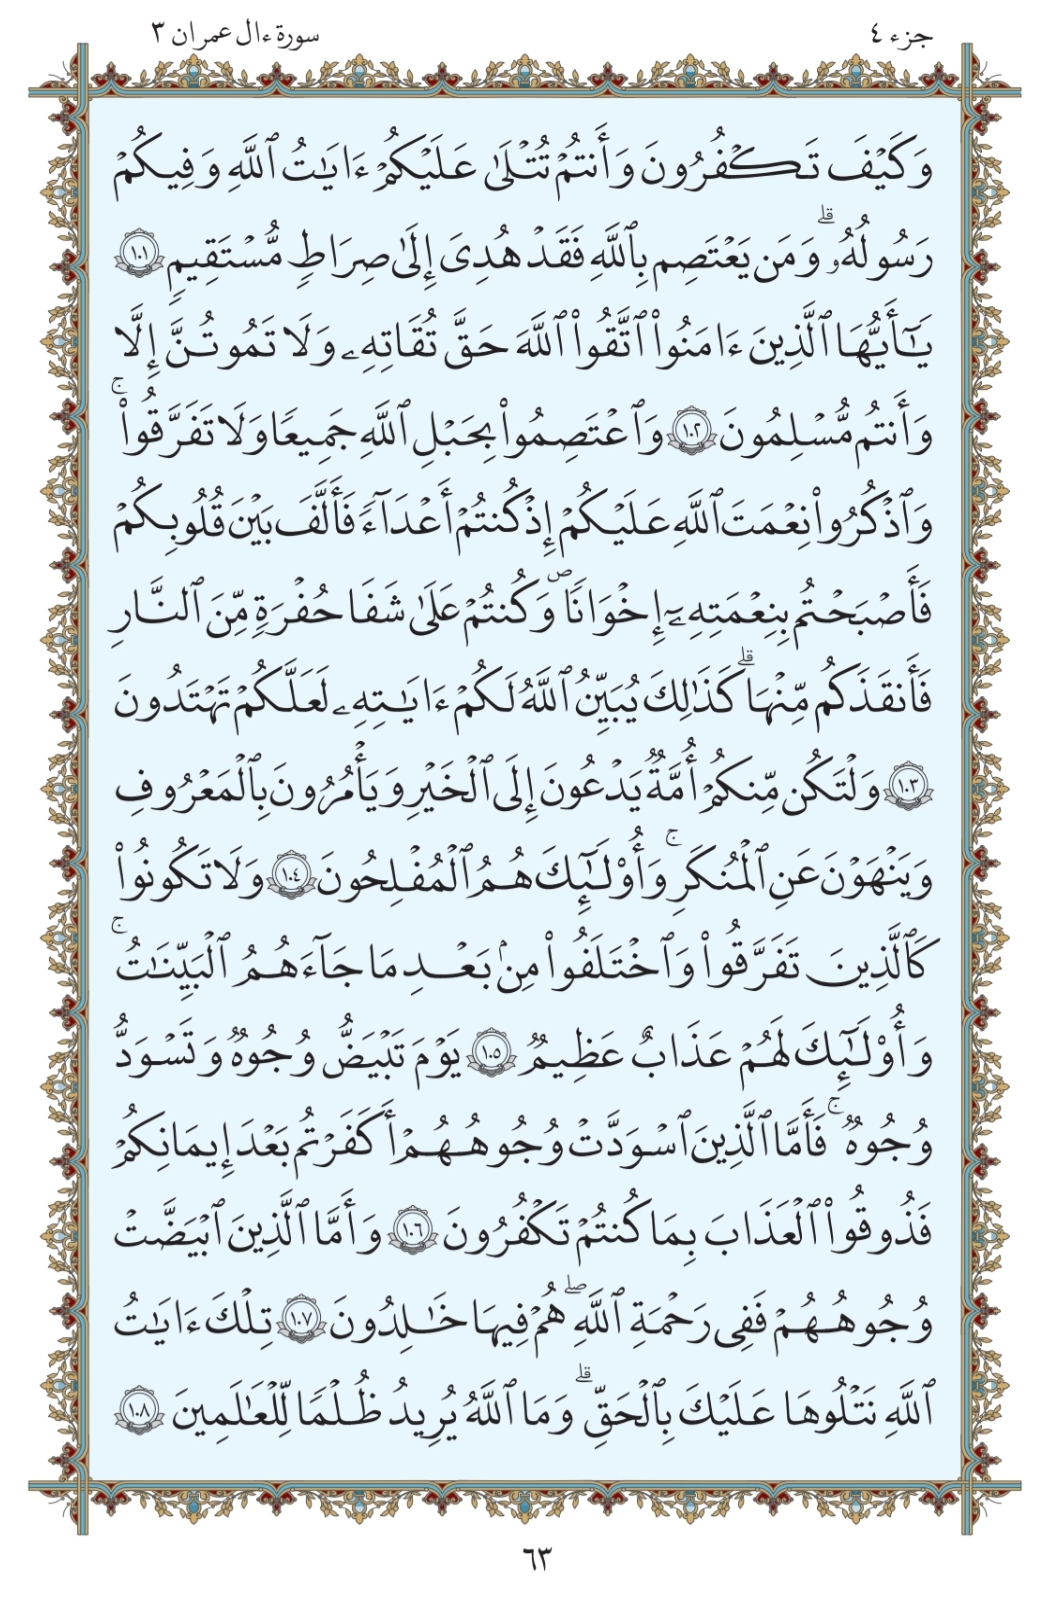 جزء ٤
سورة ءال عمران ٣
وَكَيْفَ تَكْفُرُونَ وَأَنتُمْ تُتْلَىٰ عَلَيْكُمْ ءَايَـٰتُ ٱللَّهِ وَفِيكُمْ
رَسُولُهُۥ ۗ وَمَن يَعْتَصِم بِٱللَّهِ فَقَدْ هُدِىَ إِلَىٰ صِرَٰطٍ مُّسْتَقِيمٍ ١٠١
يَـٰٓأَيُّهَا ٱلَّذِينَ ءَامَنُوا۟ ٱتَّقُوا۟ ٱللَّهَ حَقَّ تُقَاتِهِۦ وَلَا تَمُوتُنَّ إِلَّا
وَأَنتُم مُّسْلِمُونَ ١٠٢ وَٱعْتَصِمُوا۟ بِحَبْلِ ٱللَّهِ جَمِيعًا وَلَا تَفَرَّقُوا۟ ۚ
وَٱذْكُرُوا۟ نِعْمَتَ ٱللَّهِ عَلَيْكُمْ إِذْ كُنتُمْ أَعْدَآءً فَأَلَّفَ بَيْنَ قُلُوبِكُمْ
فَأَصْبَحْتُم بِنِعْمَتِهِۦٓ إِخْوَٰنًا ۖ وَكُنتُمْ عَلَىٰ شَفَا حُفْرَةٍ مِّنَ ٱلنَّارِ
فَأَنقَذَكُم مِّنْهَا ۗ كَذَٰلِكَ يُبَيِّنُ ٱللَّهُ لَكُمْ ءَايَـٰتِهِۦ لَعَلَّكُمْ تَهْتَدُونَ
١٠٣ وَلْتَكُن مِّنكُمْ أُمَّةٌ يَدْعُونَ إِلَى ٱلْخَيْرِ وَيَأْمُرُونَ بِٱلْمَعْرُوفِ
وَيَنْهَوْنَ عَنِ ٱلْمُنكَرِ ۚ وَأُو۟لَـٰٓئِكَ هُمُ ٱلْمُفْلِحُونَ ١٠٤ وَلَا تَكُونُوا۟
كَٱلَّذِينَ تَفَرَّقُوا۟ وَٱخْتَلَفُوا۟ مِنۢ بَعْدِ مَا جَآءَهُمُ ٱلْبَيِّنَـٰتُ ۚ
وَأُو۟لَـٰٓئِكَ لَهُمْ عَذَابٌ عَظِيمٌ ١٠٥ يَوْمَ تَبْيَضُّ وُجُوهٌ وَتَسْوَدُّ
وُجُوهٌ ۚ فَأَمَّا ٱلَّذِينَ ٱسْوَدَّتْ وُجُوهُهُمْ أَكَفَرْتُم بَعْدَ إِيمَـٰنِكُمْ
فَذُوقُوا۟ ٱلْعَذَابَ بِمَا كُنتُمْ تَكْفُرُونَ ١٠٦ وَأَمَّا ٱلَّذِينَ ٱبْيَضَّتْ
وُجُوهُهُمْ فَفِى رَحْمَةِ ٱللَّهِ ۖ هُمْ فِيهَا خَـٰلِدُونَ ١٠٧ تِلْكَ ءَايَـٰتُ
ٱللَّهِ نَتْلُوهَا عَلَيْكَ بِٱلْحَقِّ ۗ وَمَا ٱللَّهُ يُرِيدُ ظُلْمًا لِّلْعَـٰلَمِينَ ١٠٨
٦٣